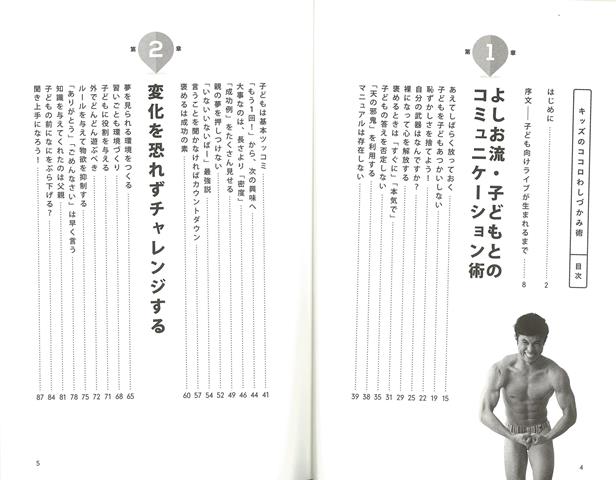 キッズのココロわしづかみ術 目次
はじめに 2
序文──子ども向けライブが生まれるまで 8
第1章
よしお流・子どもとの
コミュニケーション術
あえてしばらく放っておく 15
子どもを子どもあつかいしない 19
恥ずかしさを捨てよう! 22
自分の武器はなんですか? 25
裸になって心を解放する 29
褒めるときは「すぐに」「本気で」 31
子どもの答えを否定しない 35
「天の邪鬼」を利用する 38
マニュアルは存在しない 39
4
子どもは基本ツッコミ 41
「もう1回!」から、次の興味へ 44
大事なのは、長さより「密度」 46
「成功例」をたくさん見せる 49
親の夢を押しつけない 52
「いないいないばー」最強説 54
言うことを聞かなければカウントダウン 57
褒めるは成功の素 60
第2章
変化を恐れずチャレンジする
夢を見られる環境をつくる 65
習いごとも環境づくり 68
子どもに役割を与える 71
外でどんどん遊ぶべき 72
ルールを与えて物欲を抑制する 75
「ありがとう」「ごめんなさい」は早く言う 78
知識を与えてくれたのは父親 81
子どもの前になにをぶら下げる? 84
聞き上手になろう! 87
5